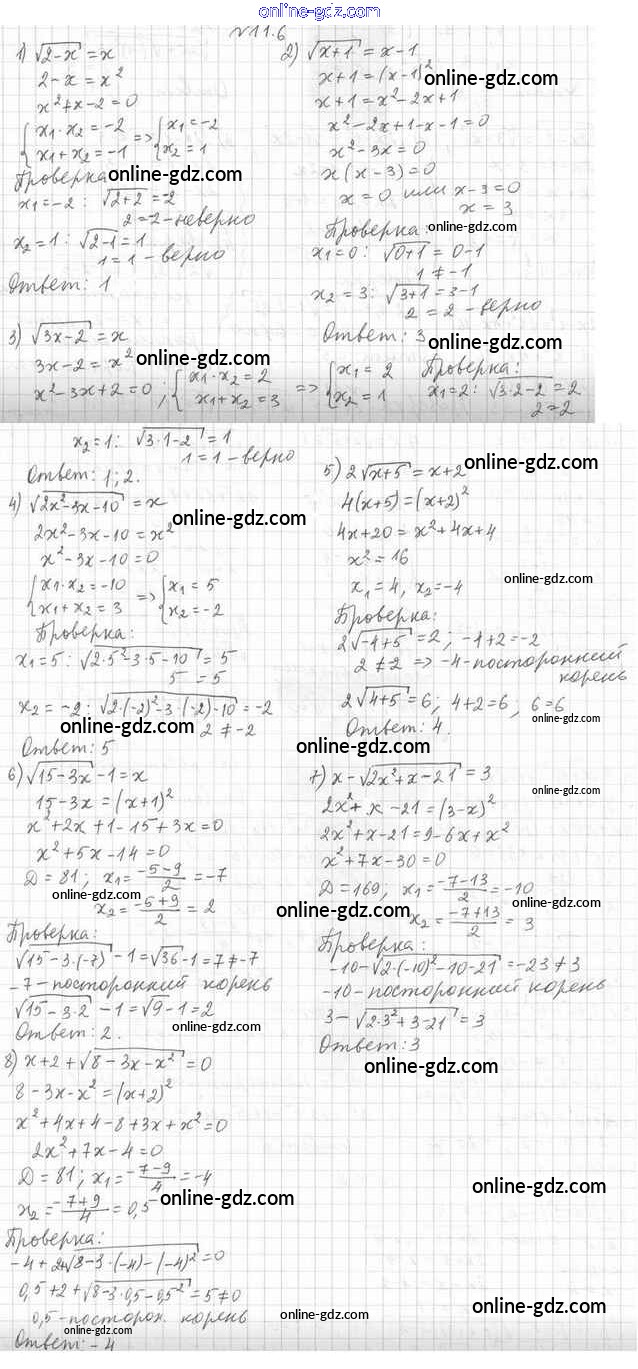 online-gdz.com
№11.6
1) √(2-x) = x
2-x = x²
x²+x-2=0
{x₁·x₂=-2
x₁+x₂=-1 => {x₁=-2
x₂=1
Проверка
online-gdz.com
x₁=-2: √(2+2)=-2
2=-2-неверно
x₂=1: √(2-1)=1
1=1-верно
Ответ: 1
2) √(x+1) = x-1
x+1=(x-1)²
online-gdz.com
x+1=x²-2x+1
x²-2x+1-x-1=0
x²-3x=0
x(x-3)=0
x=0 или x-3=0
x=3
Проверка:
online-gdz.com
x₁=0: √(0+1)=0-1
1≠-1
x₂=3: √(3+1)=3-1
2=2-верно
Ответ: 3
online-gdz.com
3) √(3x-2) = x
3x-2=x²
online-gdz.com
x²-3x+2=0; {x₁·x₂=2
x₁+x₂=3 => {x₁=2
x₂=1
Проверка:
x₁=2: √(3·2-2)=2
2=2
x₂=1: √(3·1-2)=1
1=1-верно
Ответ: 1; 2.
4) √(2x²-3x-10) = x
online-gdz.com
2x²-3x-10=x²
x²-3x-10=0
{x₁·x₂=-10
x₁+x₂=3 => {x₁=5
x₂=-2
Проверка:
x₁=5: √(2·5²-3·5-10)=5
5=5
x₂=-2: √(2·(-2)²-3·(-2)-10)=-2
online-gdz.com
2≠-2
Ответ: 5
5) 2√(x+5)=x+2
online-gdz.com
4(x+5)=(x+2)²
4x+20=x²+4x+4
x²=16
online-gdz.com
x₁=4, x₂=-4
Проверка:
2√(-4+5)=2; -4+2=-2
online-gdz.com
2≠2 => -4-посторонний
корень
2√(4+5)=6; 4+2=6; 6=6
online-gdz.com
Ответ: 4.
6) √(15-3x)-1=x
15-3x=(x+1)²
x²+2x+1-15+3x=0
x²+5x-14=0
D=81; x₁=(-5-9)/2=-7
online-gdz.com
x₂=(-5+9)/2=2
Проверка:
√(15-3·(-7))-1=√36-1=7≠-7
-7-посторонний корень
√(15-3·2)-1=√9-1=2
Ответ: 2.
online-gdz.com
7) x-√(2x²+x-21)=3
online-gdz.com
2x²+x-21=(3-x)²
2x²+x-21=9-6x+x²
x²+7x-30=0
D=169, x₁=(-7-13)/2=-10
online-gdz.com
online-gdz.com
x₂=(-7+13)/2=3
Проверка:
-10-√(2·(-10)²-10-21)=-23≠3
-10-посторонний корень
3-√(2·3²+3-21)=3
Ответ: 3
online-gdz.com
8) x+2+√(8-3x-x²)=0
8-3x-x²=(x+2)²
x²+4x+4-8+3x+x²=0
2x²+7x-4=0
D=81; x₁=(-7-9)/4=-4
x₂=(-7+9)/4=0,5
online-gdz.com
online-gdz.com
Проверка:
-4+2+√(8-3·(-4)-(-4)²)=0
0,5+2+√(8-3·0,5-0,5²)=5≠0
online-gdz.com
0,5-посторон. корень
online-gdz.com
online-gdz.com
Ответ: -4